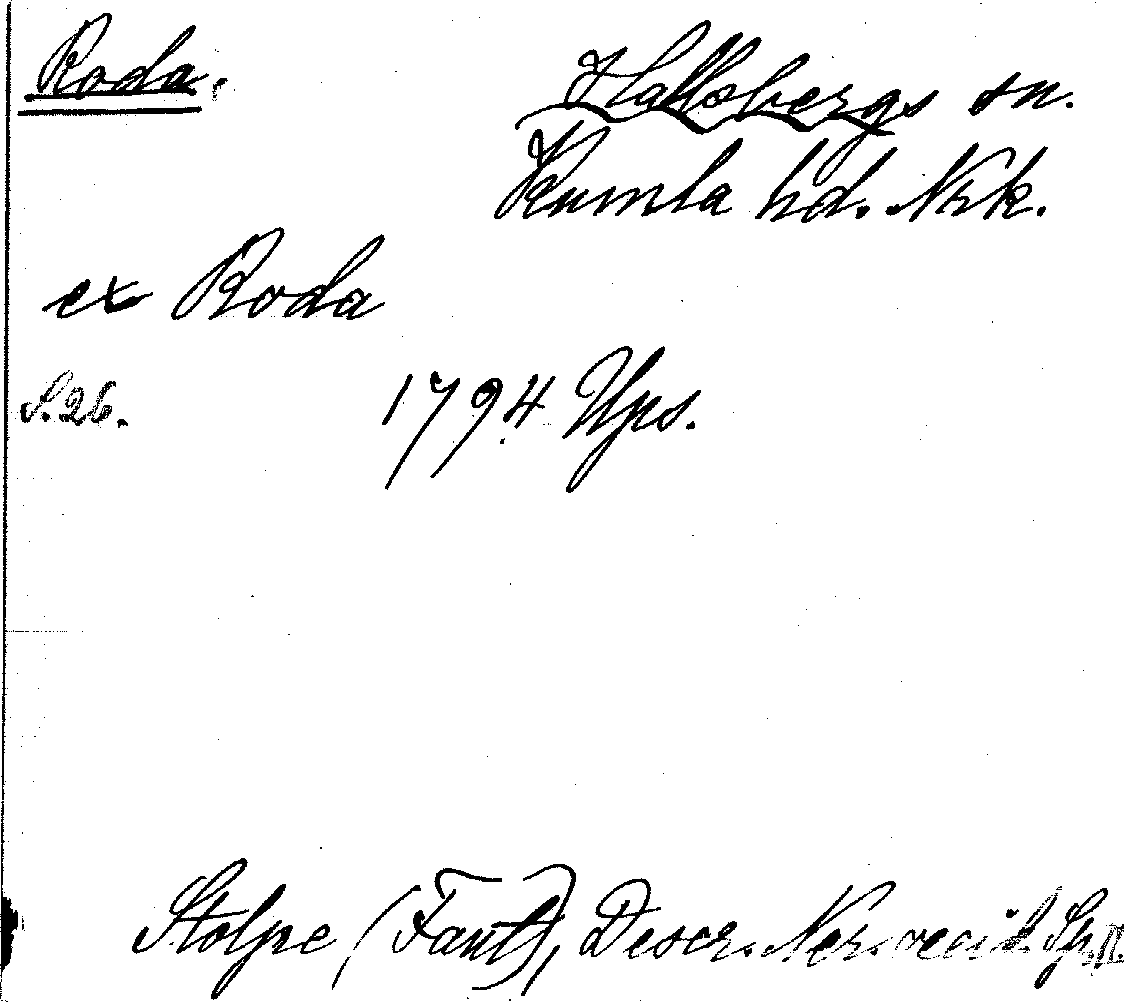 Roda.
Hallsbergs sn.
Kumla hd. Nrk.
ex Roda
S. 26.
1794 Ups.
Stolpe (Fant), Descr. Ner. vecik Sp. II.